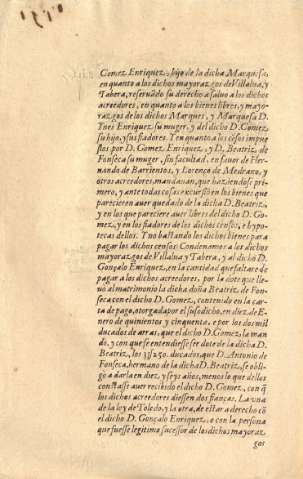 Gomez Enriquez, hijo de la dicha Marquesa,
en quanto a los dichos mayorazgos de Villalua, y
Tabera, reseruãdo su derecho a saluo a los dichos
acreedores, en quanto a los bienes libres, y mayo-
razgos de los dichos Marques, y Marquesa D.
Ynes Enriquez su muger, y del dicho D. Gomez
su hijo, y sus fiadores. Y en quanto a los cẽsos impue
stos por D. Gomez Enriquez, y D. Beatriz de
Fonseca su muger, sin facultad, en fauor de Her-
nando de Barrientos, y Lorenço de Medrano, y
otros acreedores, mandauan, que haziendose pri-
mero, y ante todas cosas excursiõ en los bienes, que
pareciessen auer quedado de la dicha D. Beatriz,
y en los que pareciere auer libres del dicho D. Go-
mez, y en los fiadores de los dichos censos, e hypo-
tecas dellos. Y no bastando los dichos bienes para
pagar los dichos censos: Condenamos a los dichos
mayorazgos de Villalua y Tabera, y al dicho D.
Gonçalo Enriquez, en la cantidad que faltare de
pagar a los dichos acreedores, por la dote que lle-
uò al matrimonio la dicha doña Beatriz de Fon-
seca con el dicho D. Gomez, contenido en la car-
ta de pago, otorgada por el susodicho, en diez de E-
nero de quinientos y cinquenta, e por los dos mil
ducados de arras, que el dicho D. Gomez, la man
dò, y con que se entendiesse ser dote de la dicha D.
Beatriz, los ducados, que D. Antonio de
Fonseca, hermano de la dicha D. Beatriz, se obli-
gò a darla en diez, y seys años, menos lo que dellos
constasse auer recibido el dicho D. Gomez, con q̃
los dichos acreedores diessen dos fianças. La vna
de la ley de Toledo, y la otra, de estar a derecho cõ
el dicho D. Gonçalo Enriquez, o con la persona
que fuesse legitimo sucessor de los dichos mayoraz
gos